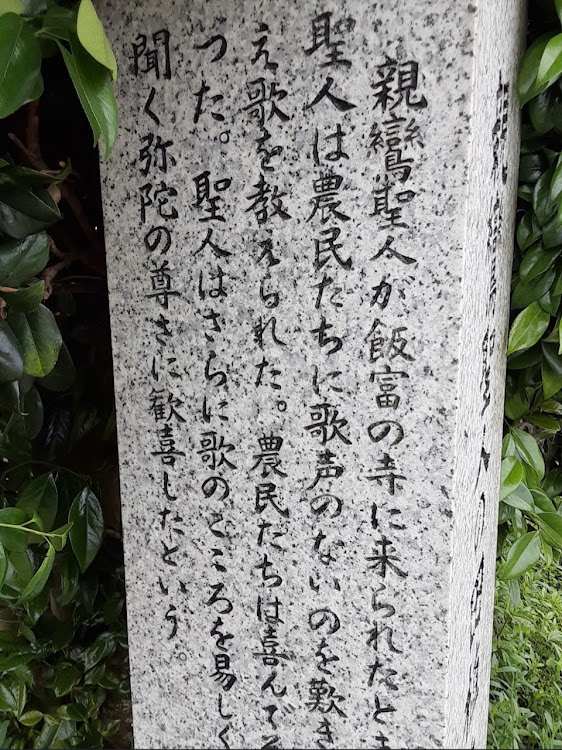 親鸞聖人が飯富の寺に来られたとき
聖人は農民たちに歌声のないのを歎き
え歌を教えられた。農民たちは喜んでそ
つた。聖人はさらに歌のこころを易しく
聞く弥陀の尊さに歓喜したという。